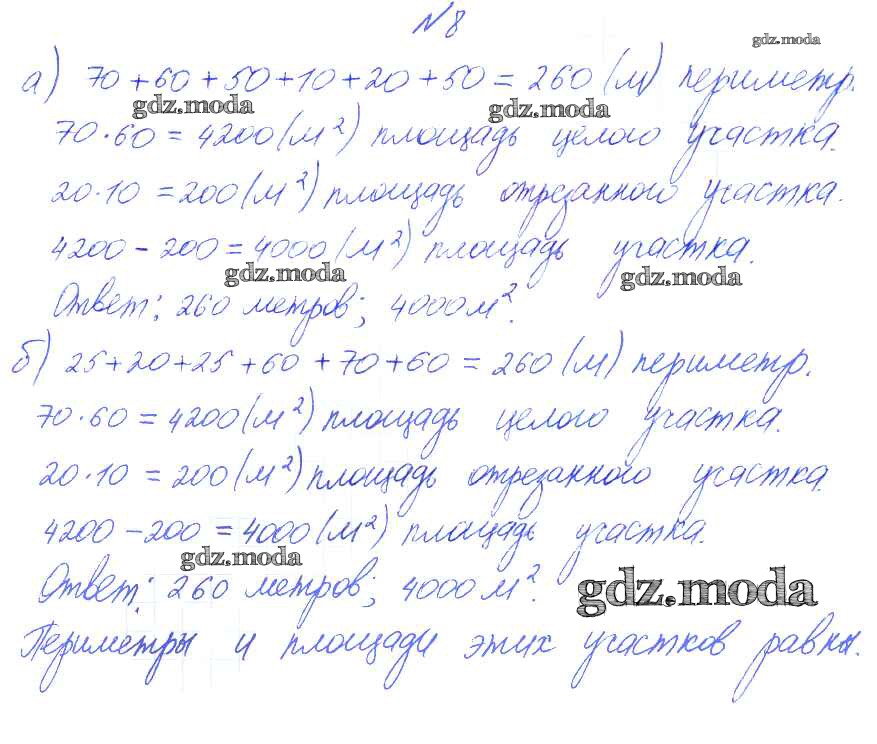 №8
gdz.moda
а) 70 + 60 + 50 + 10 + 20 + 50 = 260 (м) периметр.
gdz.moda gdz.moda
70 · 60 = 4200 (м²) площадь целого участка.
20 · 10 = 200 (м²) площадь отрезанного участка.
4200 - 200 = 4000 (м²) площадь участка.
gdz.moda gdz.moda
Ответ: 260 метров; 4000 м².
б) 25 + 20 + 25 + 60 + 70 + 60 = 260 (м) периметр.
70 · 60 = 4200 (м²) площадь целого участка.
20 · 10 = 200 (м²) площадь отрезанного участка.
4200 - 200 = 4000 (м²) площадь участка.
gdz.moda
Ответ: 260 метров; 4000 м².
gdz.moda
Периметры и площади этих участков равны.